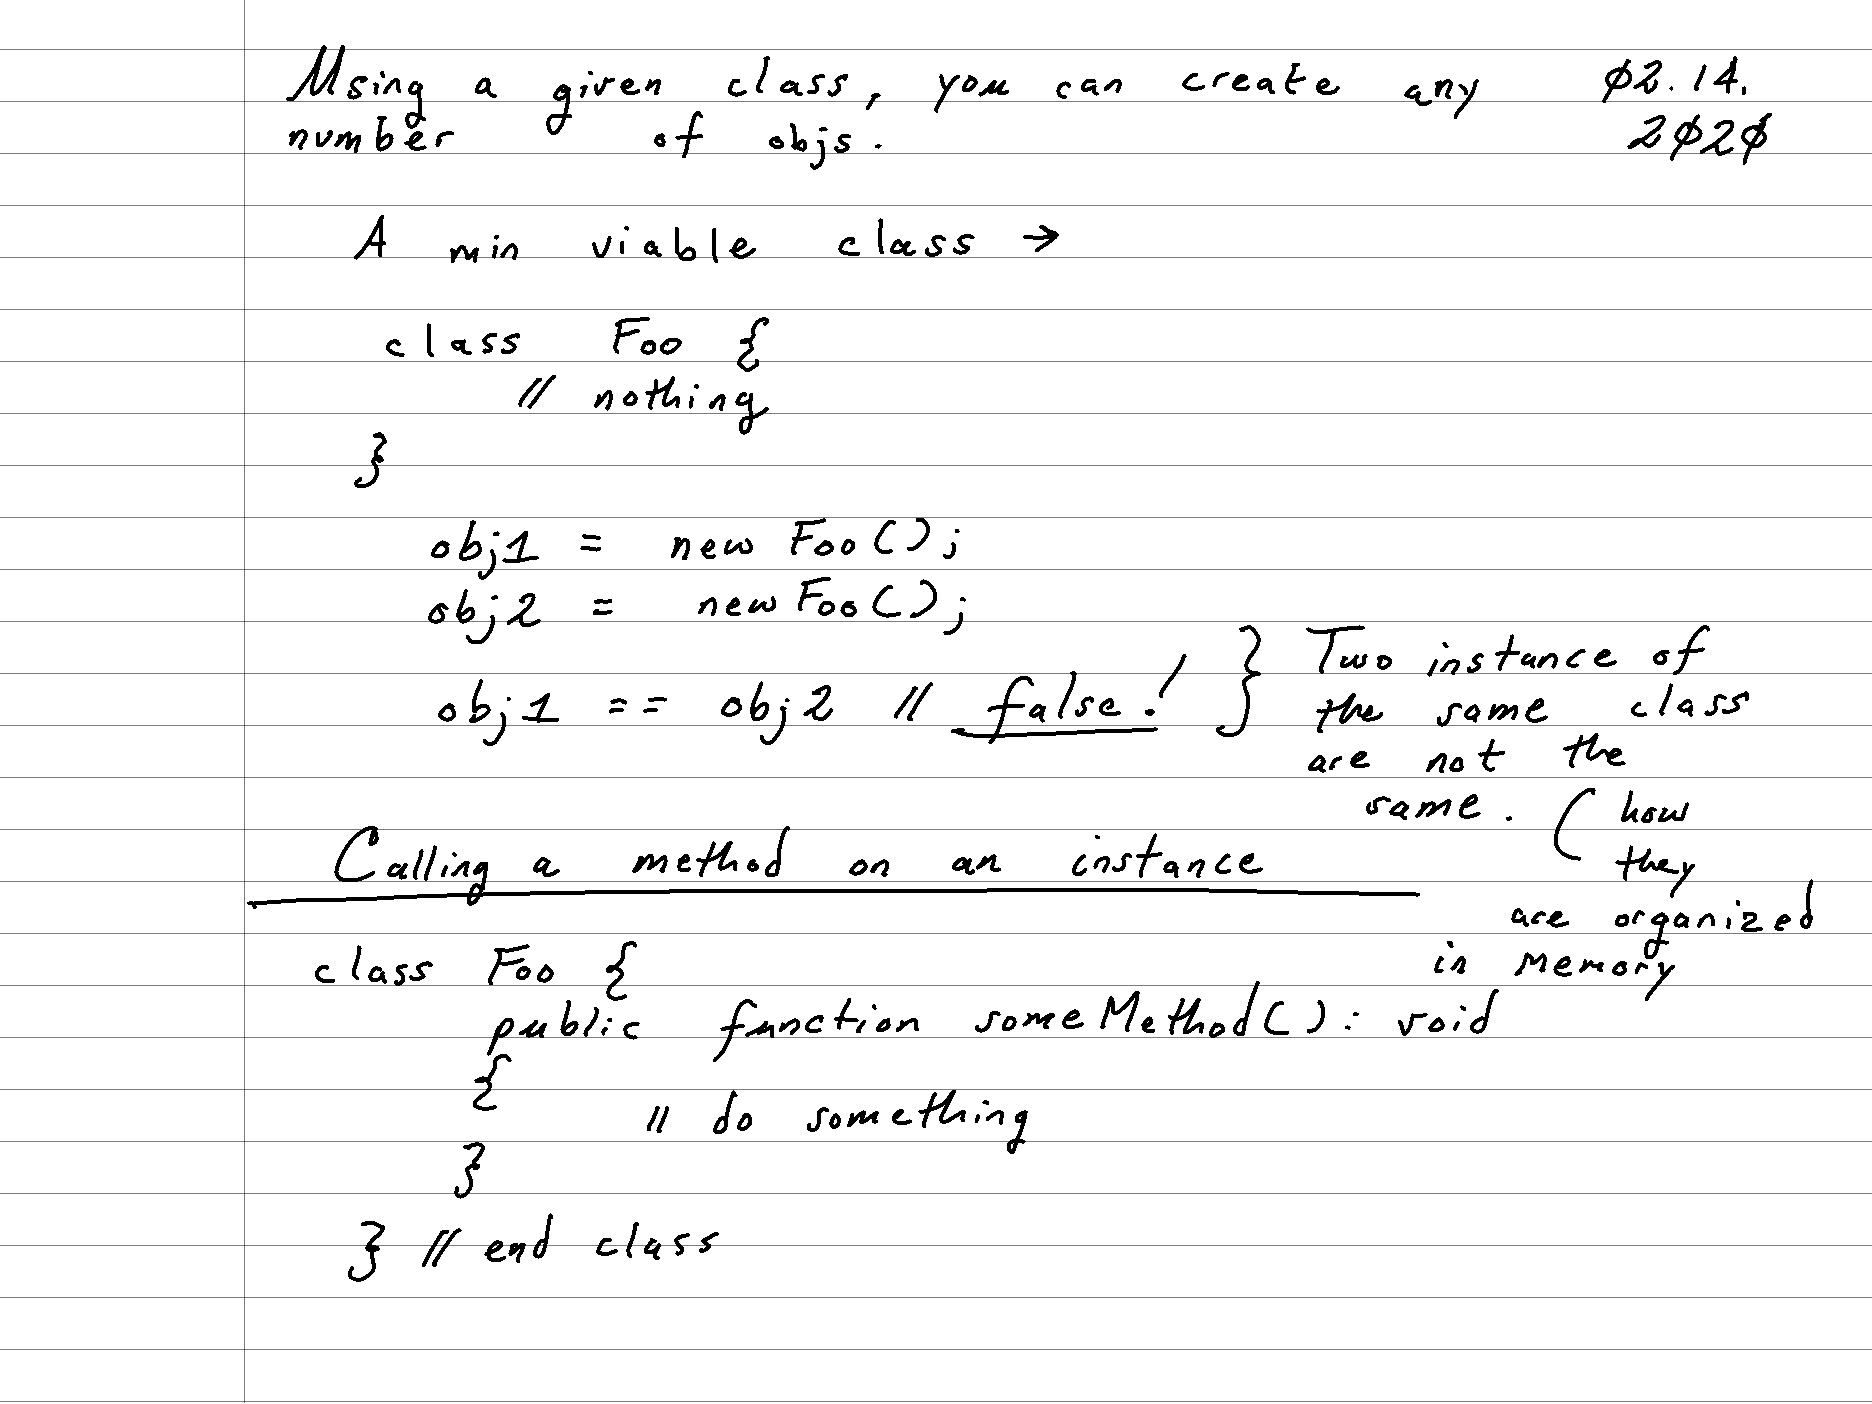 Using a given class, you can create any
number of objs.
02.14.
2020
A min viable class →
class Foo {
// nothing
}
obj1 = new Foo();
obj2 = new Foo();
obj1 == obj2 // false!
} Two instance of
the same class
are not the
same. ( how
they
are organized
in memory
Calling a method on an instance
class Foo {
public function someMethod(): void
{
// do something
}
} // end class